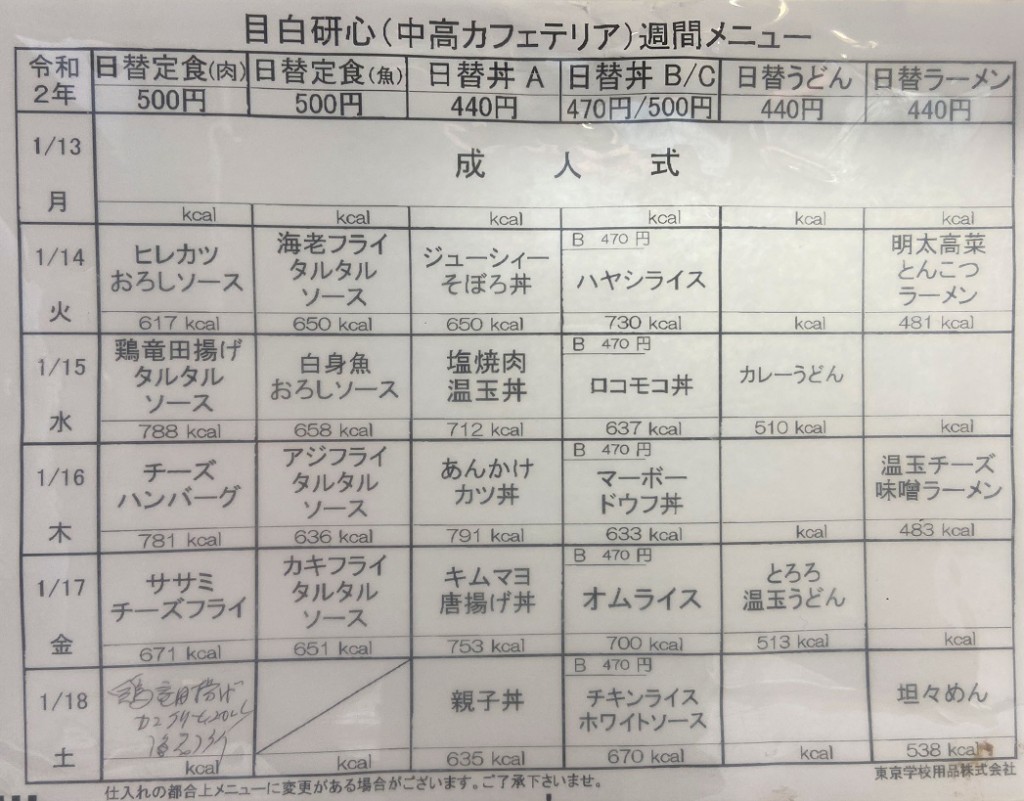 目白研心(中高カフェテリア)週間メニュー
令和
2年
日替定食(肉)
500円
日替定食(魚)
500円
日替丼 A
440円
日替丼 B/C
470円/500円
日替うどん
440円
日替ラーメン
440円
1/13
月
成人式
kcal
kcal
kcal
kcal
kcal
kcal
1/14
火
ヒレカツ
おろしソース
617 kcal
海老フライ
タルタル
ソース
650 kcal
ジューシィー
そぼろ丼
650 kcal
B 470 円
ハヤシライス
730 kcal
kcal
明太高菜
とんこつ
ラーメン
481 kcal
1/15
水
鶏竜田揚げ
タルタル
ソース
788 kcal
白身魚
おろしソース
658 kcal
塩焼肉
温玉丼
712 kcal
B 470 円
ロコモコ丼
637 kcal
カレーうどん
510 kcal
kcal
1/16
木
チーズ
ハンバーグ
781 kcal
アジフライ
タルタル
ソース
636 kcal
あんかけ
カツ丼
791 kcal
B 470 円
マーボー
ドウフ丼
633 kcal
kcal
温玉チーズ
味噌ラーメン
483 kcal
1/17
金
ササミ
チーズフライ
671 kcal
カキフライ
タルタル
ソース
651 kcal
キムマヨ
唐揚げ丼
753 kcal
B 470 円
オムライス
700 kcal
とろろ
温玉うどん
513 kcal
kcal
1/18
土
鶏竜田揚げ
kcal
親子丼
635 kcal
B 470 円
チキンライス
ホワイトソース
670 kcal
kcal
坦々めん
538 kcal
仕入れの都合上メニューに変更がある場合がございます。ご了承下さいませ。
東京学校用品株式会社